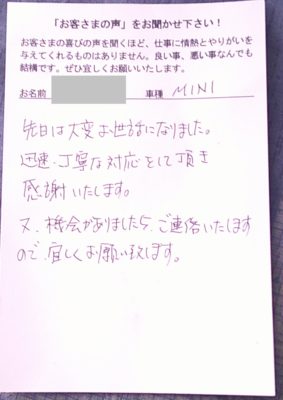 「お客さまの声」をお聞かせ下さい！
お客さまの喜びの声を聞くほど、仕事に情熱とやりがいを
与えてくれるものはありません。良い事、悪い事なんでも
結構です。ぜひ宜しくお願いいたします。
お名前 車種 MINI
先日は大変お世話になりました。
迅速、丁寧な対応をして頂き
感謝いたします。
又、機会がありましたら、ご連絡いたします
ので、宜しくお願い致します。